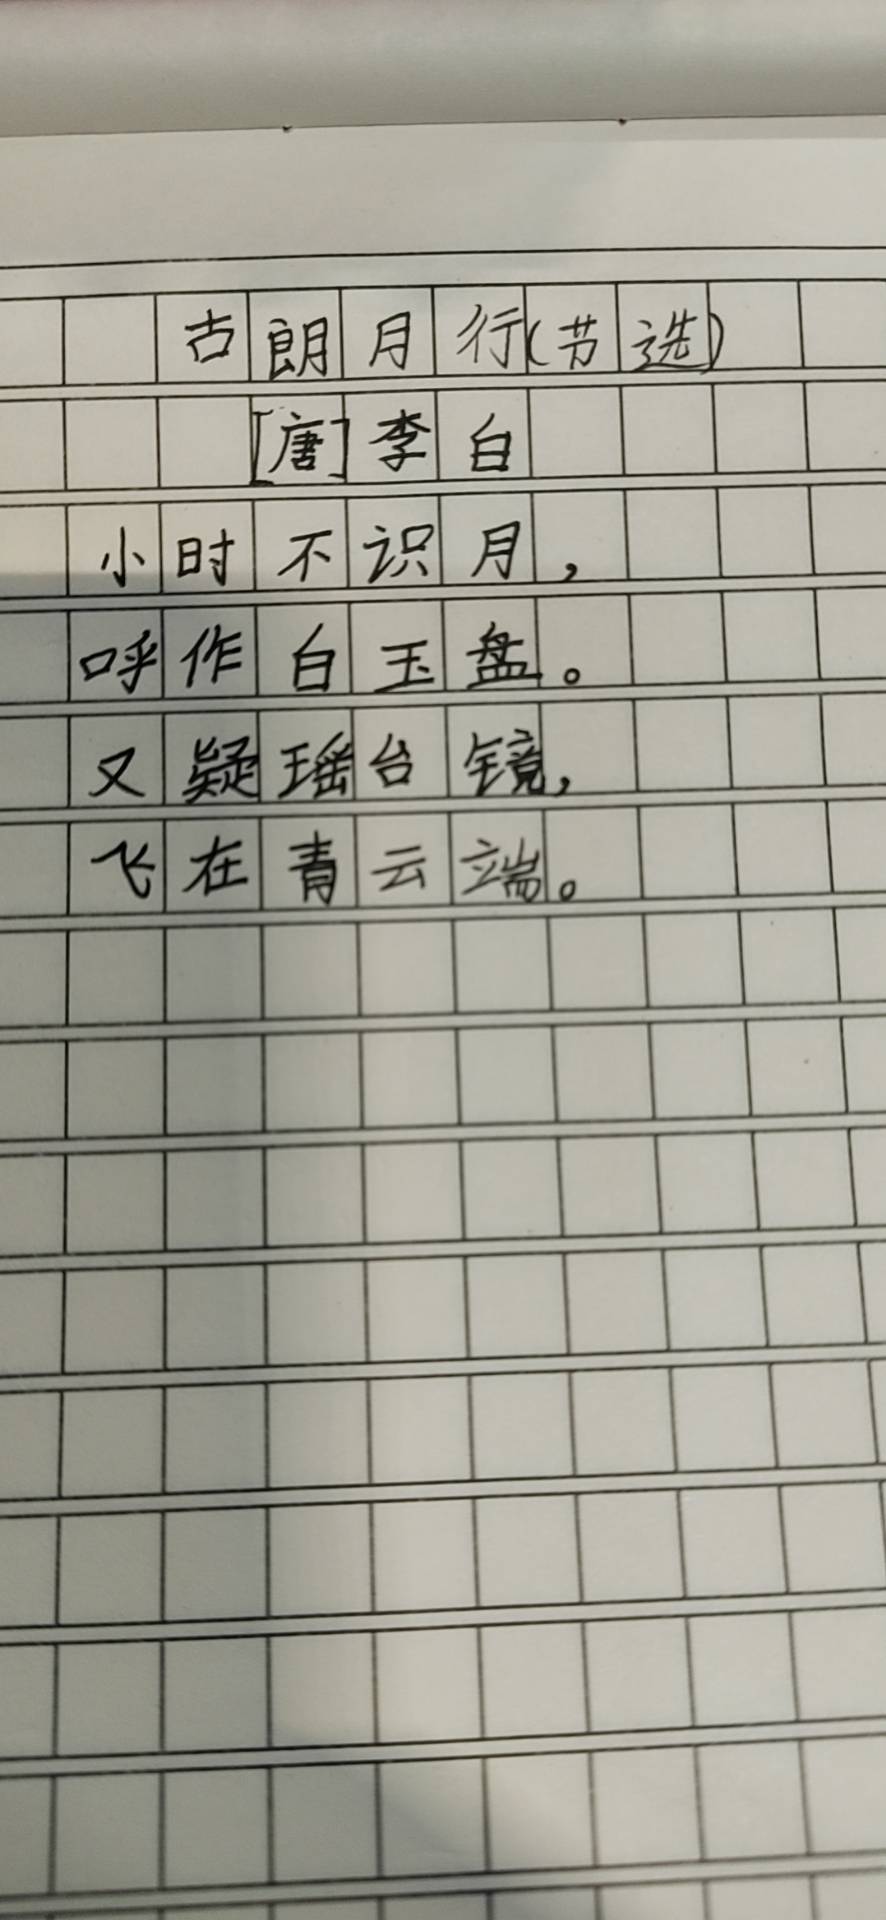 古朗月行(节选)
[唐]李白
小时不识月，
呼作白玉盘。
又疑瑶台镜，
飞在青云端。